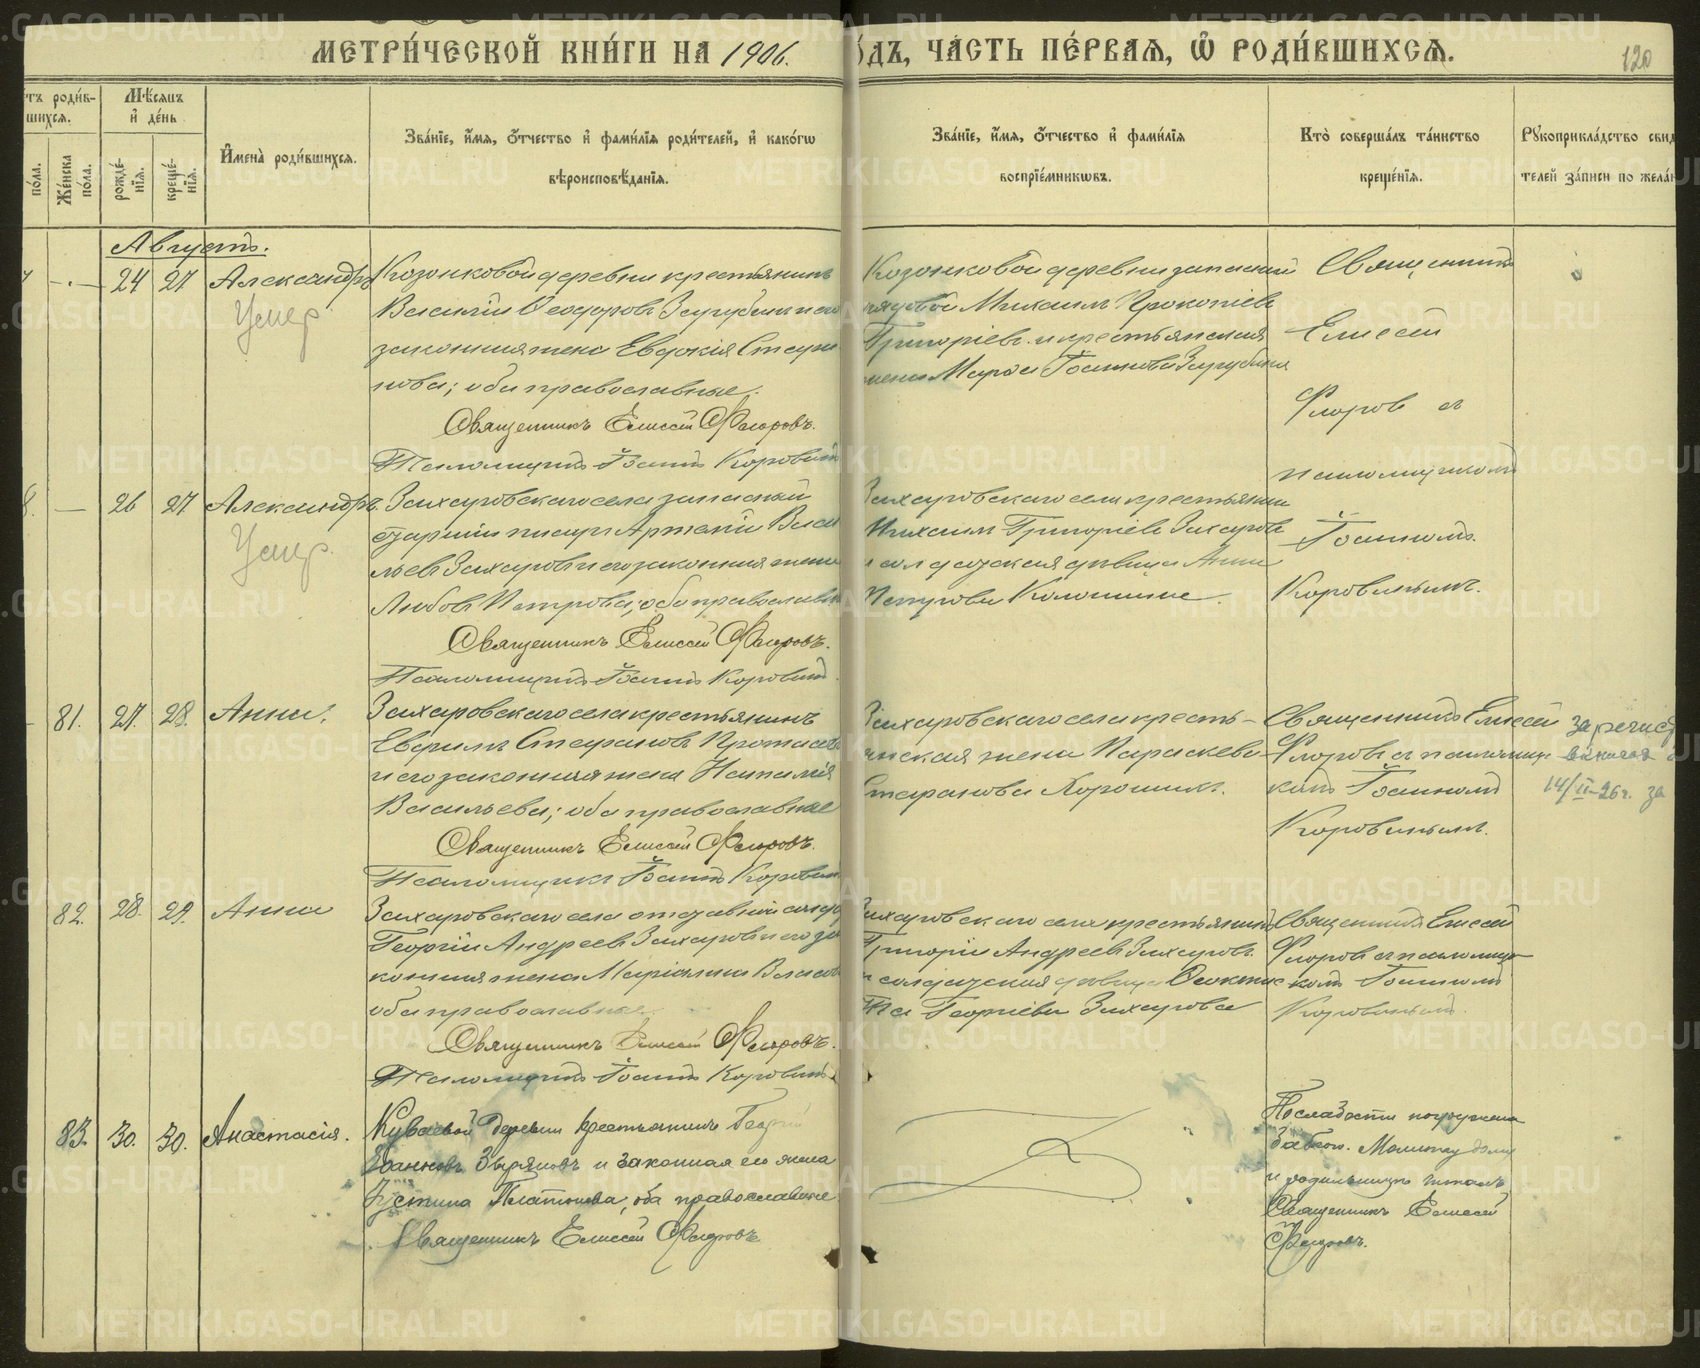 МЕТРИ́ЧЕСКОЙ КНИ́ГИ НА 1906.
ОДЪ, ЧА́СТЬ ПЕ́РВАЯ, Ѡ РОДИ́ВШИХСЯ.
120
тъ роди́в-
шихся.
по́ла.
Же́нска по́ла.
Мѣ́сяцъ и де́нь
рожде́-нїя.
креще́-нїя.
Имена̀ роди́вшихся.
Зва́нїе, и́мя, о́тчество и фами́лїя роди́телей, и како́гѡ
вѣроисповѣ́данїя.
Зва́нїе, и́мя, о́тчество и фами́лїя
воспрїе́мникѡвъ.
Кто̀ соверша́лъ та́инство
креще́нїя.
Рꙋкоприкла́дство свид
телей за́писи по жела́н
Августъ.
24 27 Александръ
Умер
Козонковой деревни крестьянинъ
Василій Ѳеодоровъ Зарубинъ и его
законная жена Евдокія Степа
нова; оба православные.
Священникъ Елисей Флоровъ.
Псаломщикъ Іоаннъ Коровинъ
Козонковой деревни запасный
рядовой Михаилъ Прокопіевъ
Григоріевъ и крестьянская
жена Марѳа Іоаннова Зарубина
Священникъ
Елисей
Флоровъ съ
псаломщикомъ
Іоанномъ
Коровинымъ.
8. — 26 27 Александръ
Умер.
Захаровскаго села запасный
старшій писарь Артемій Васи
льевъ Захаровъ и его законная жена
Любовь Петрова; оба православн
Священникъ Елисей Флоровъ.
Псаломщикъ Іоаннъ Коровинъ.
Захаровскаго села крестьянин
Михаилъ Григоріевъ Захаровъ
и солдатская дѣвица Анна
Петрова Колошина.
81. 27. 28. Анна.
Захаровскаго села крестьянинъ
Евфимъ Стефановъ Протасовъ
и его законная жена Наталія
Васильева; оба православные
Священникъ Елисей Флоровъ.
Псаломщикъ Іоаннъ Коровинъ
Захаровскаго села кресть-
янская жена Параскева
Стефанова Хорошихъ.
Священникъ Елисей
Флоровъ съ псаломщи-
комъ Іоанномъ
Коровинымъ.
14/II-26 г. за
82. 28. 29. Анна
Захаровскаго села отставной солда
Георгій Андреевъ Захаровъ и его за
конная жена Маріанна Власова
оба православные.
Священникъ Елисей Флоровъ.
Псаломщикъ Іоаннъ Коровинъ.
Захаровскаго села крестьянинъ
Григорій Андреевъ Захаровъ
и солдатская дѣвица Ѳеоктис
та Георгіева Захарова
Священникъ Елисей
Флоровъ съ псаломщи-
комъ Іоанномъ
Коровинымъ.
83. 30. 30. Анастасія.
Куваевой деревни крестьянинъ Георгій
Іоанновъ Зыряновъ и законная его жена
Іустина Платонова, оба православные
Священникъ Елисей Флоровъ
По слабости погружена
бабкою. Молитву дому
и родильницѣ читалъ
Священникъ Елисей
Флоровъ.
METRIKI.GASO-URAL.RU